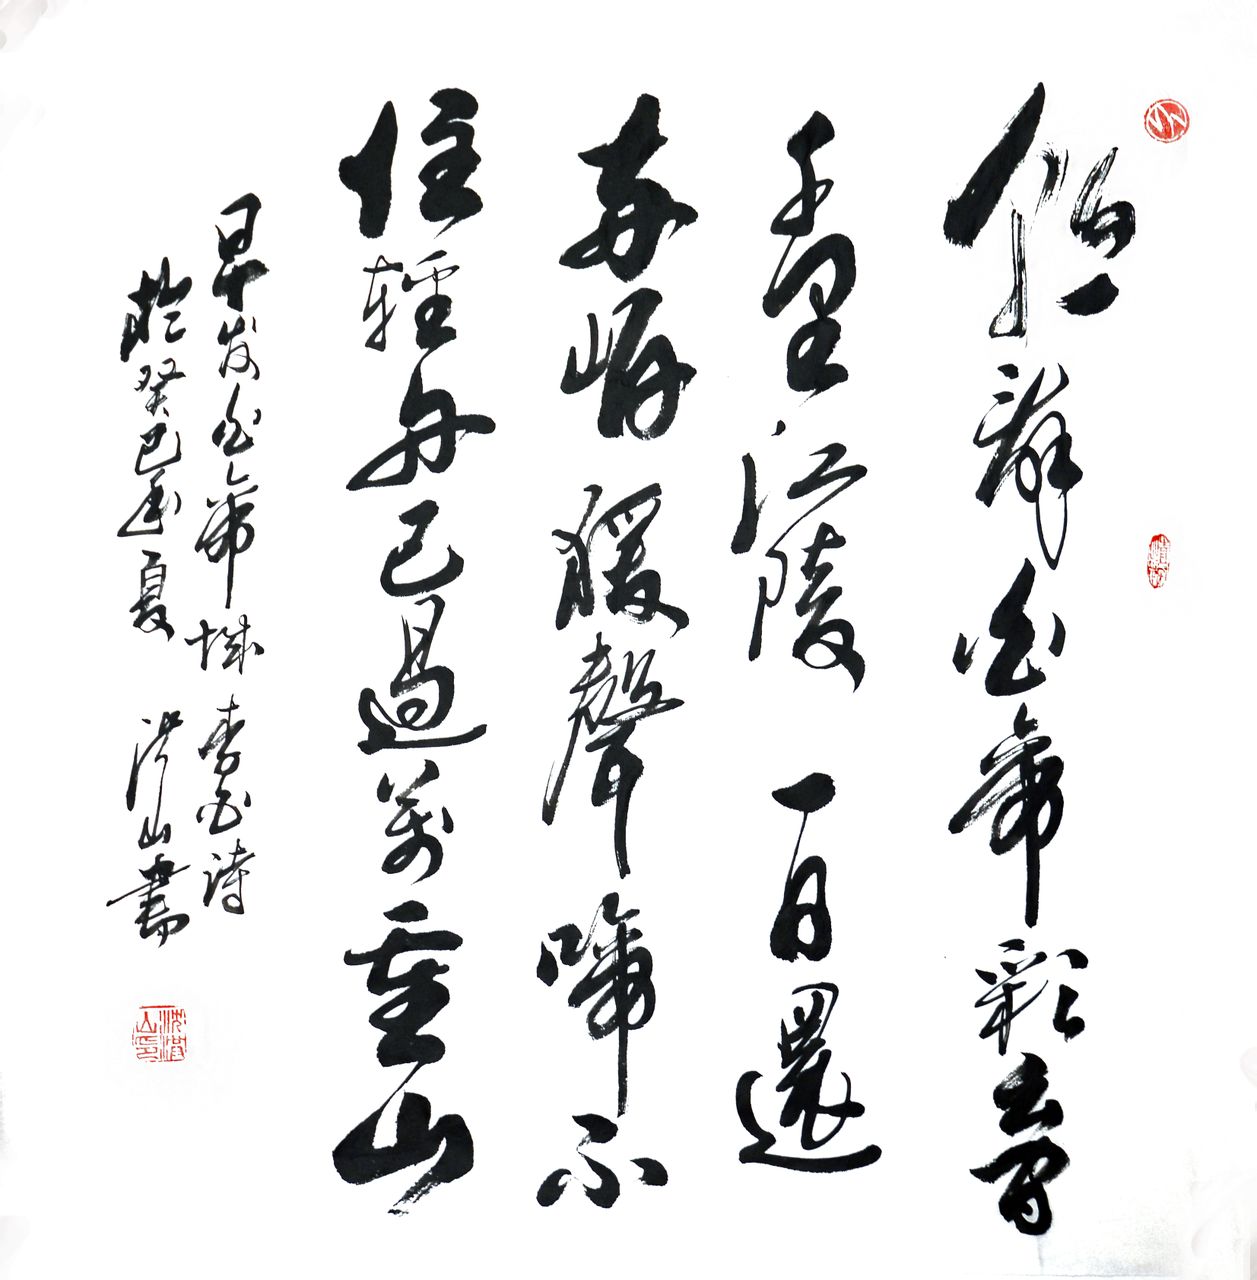 朝辭白帝彩雲間
千里江陵一日還
兩岸猿聲啼不
住輕舟已過萬重山
早发白帝城 李白詩
於癸巳年夏 漢山書
沈漢山印